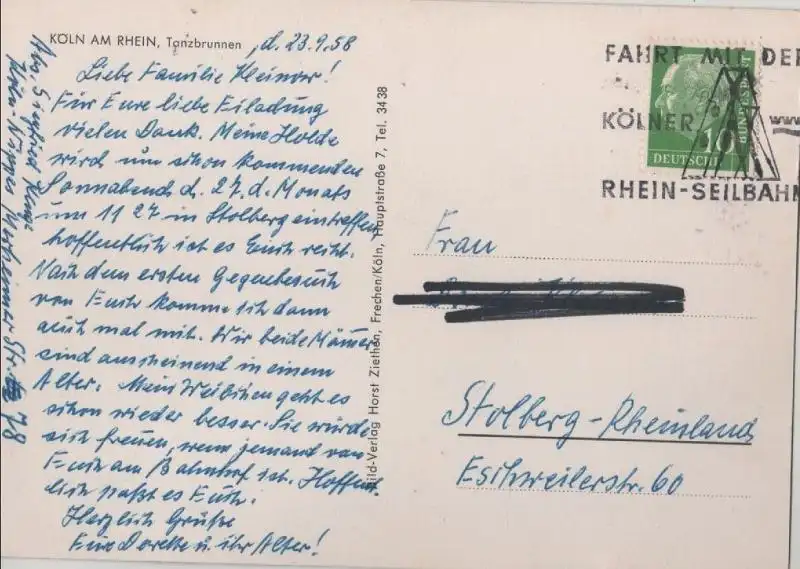 KÖLN AM RHEIN, Tanzbrunnen
d. 23.9.58
Liebe Familie
Für Eure liebe Eiladung
vielen Dank. Meine Holde
wird nun schon kommenden
Sonnabend d. 27. d. Monats
um 11 27 in Stolberg eintreffen
hoffentlich ist es Euch recht.
Nach dem ersten Gegenbesuch
von Euch komme ich dann
auch mal mit. Wir beide Männer
sind anscheinend in einem
Alter. Mein Weibchen geht es
schon wieder besser. Sie würde
sich freuen, wenn jemand von
Euch am Bahnhof ist. Hoffent-
lich paßt es Euch.
Herzlich Grüße
Eure u. ihr Alter!
Abs. Siegfried
Köln-Nippes
Str. 78
Bild-Verlag Horst Ziethen, Frechen/Köln, Hauptstraße 7, Tel. 3438
FAHRT MIT DER
KÖLNER
RHEIN-SEILBAHN
10
DEUTSCHE
BUNDESPOST
Frau
Stolberg-Rheinland
Eschweilerstr. 60